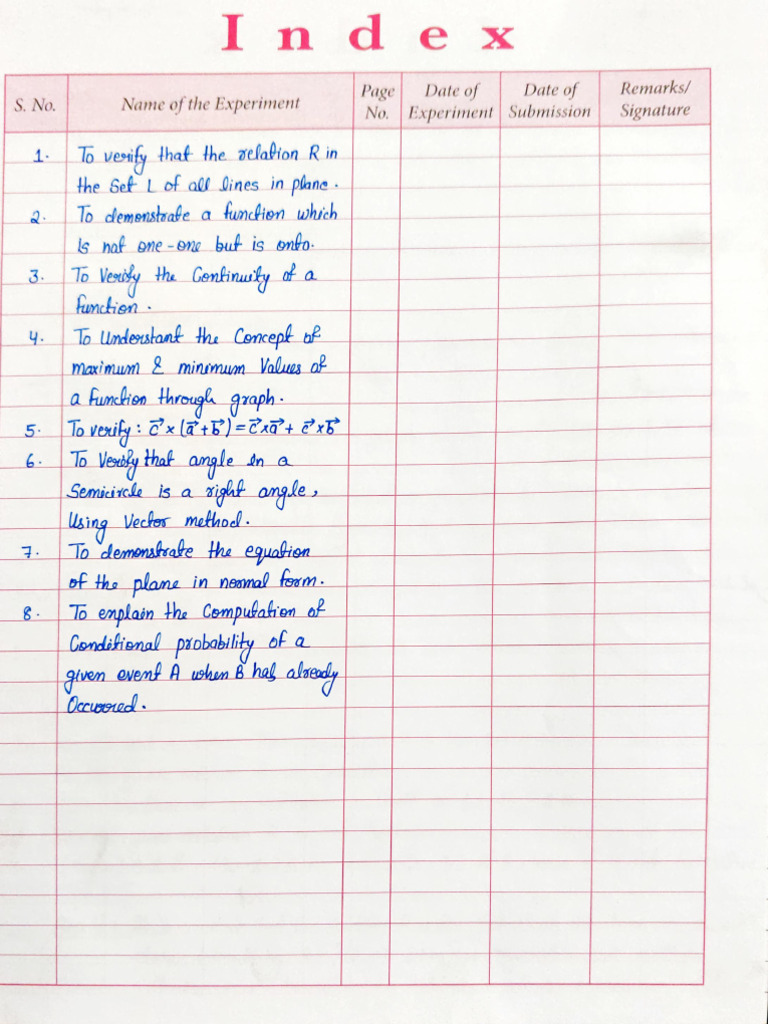 Index
S. No. Name of the Experiment Page No. Date of Experiment Date of Submission Remarks/ Signature
1. To verify that the relation R in
the Set L of all lines in plane.
2. To demonstrate a function which
is not one-one but is onto.
3. To Verify the Continuity of a
function.
4. To Understant the Concept of
maximum & minimum Values of
a function through graph.
5. To verify: c⃗ × (a⃗ + b⃗) = c⃗ × a⃗ + c⃗ × b⃗
6. To Verify that angle in a
Semicircle is a right angle,
Using Vector method.
7. To demonstrate the equation
of the plane in normal form.
8. To explain the Computation of
Conditional probability of a
given event A when B has already
Occurred.